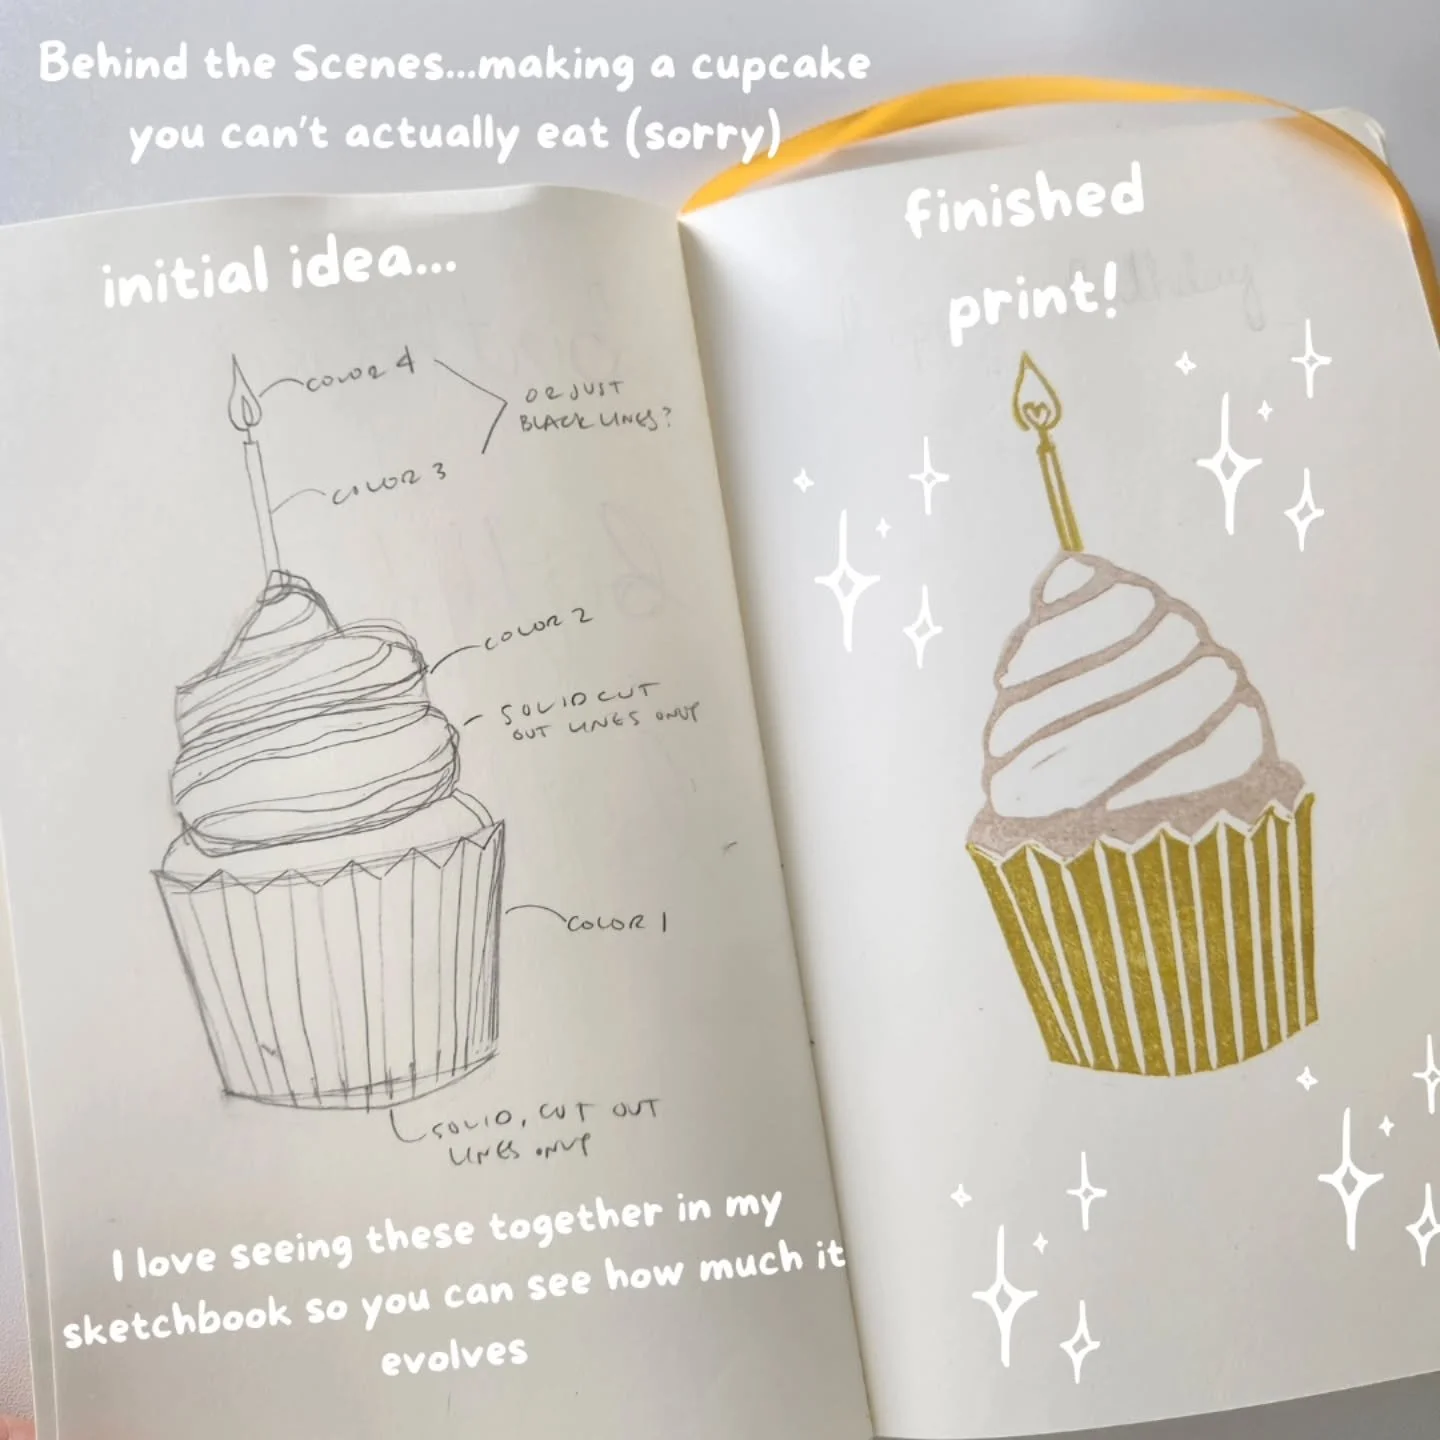 Behind the Scenes...making a cupcake
you can't actually eat (sorry)
initial idea...
COLOR 4
OR JUST
BLACK LINES?
COLOR 3
COLOR 2
SOLID CUT
OUT LINES ONLY
COLOR 1
SOLID, CUT OUT
LINES ONLY
I love seeing these together in my
sketchbook so you can see how much it
evolves
finished
print!